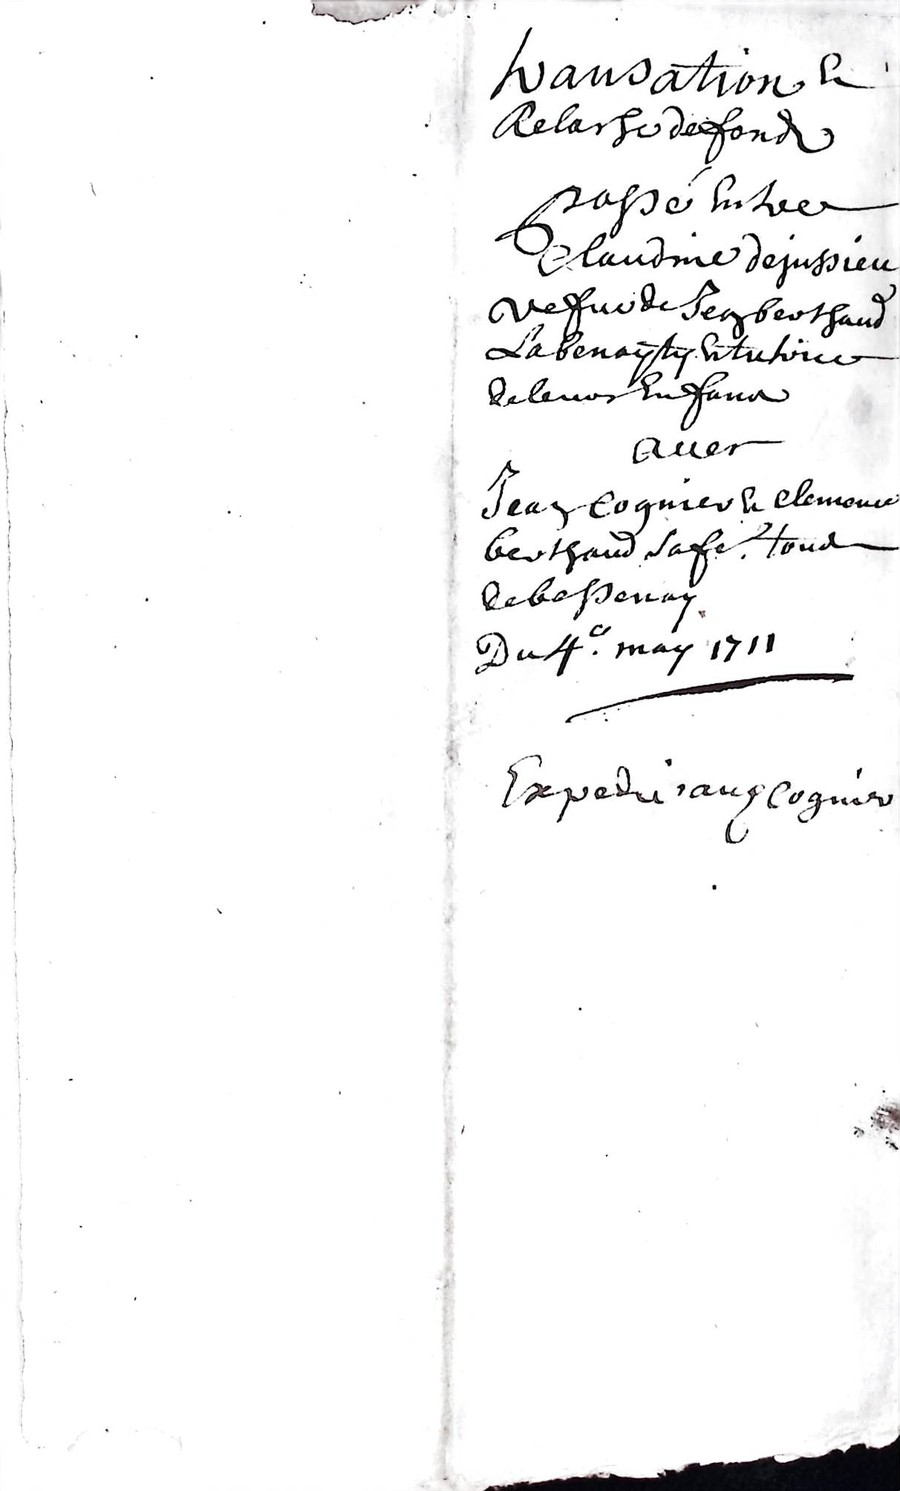 transation Et
Relasche de fondz
passé Entre
Claudine dejussieu
veffue de Jean berthaud
Labenayty Et tutrice
de leurs Enffans
avec
Jean Cognier Et Clemence
berthaud sa fe. tous
de bessenay
Du 4e. may 1711
Expedié aux Cognier